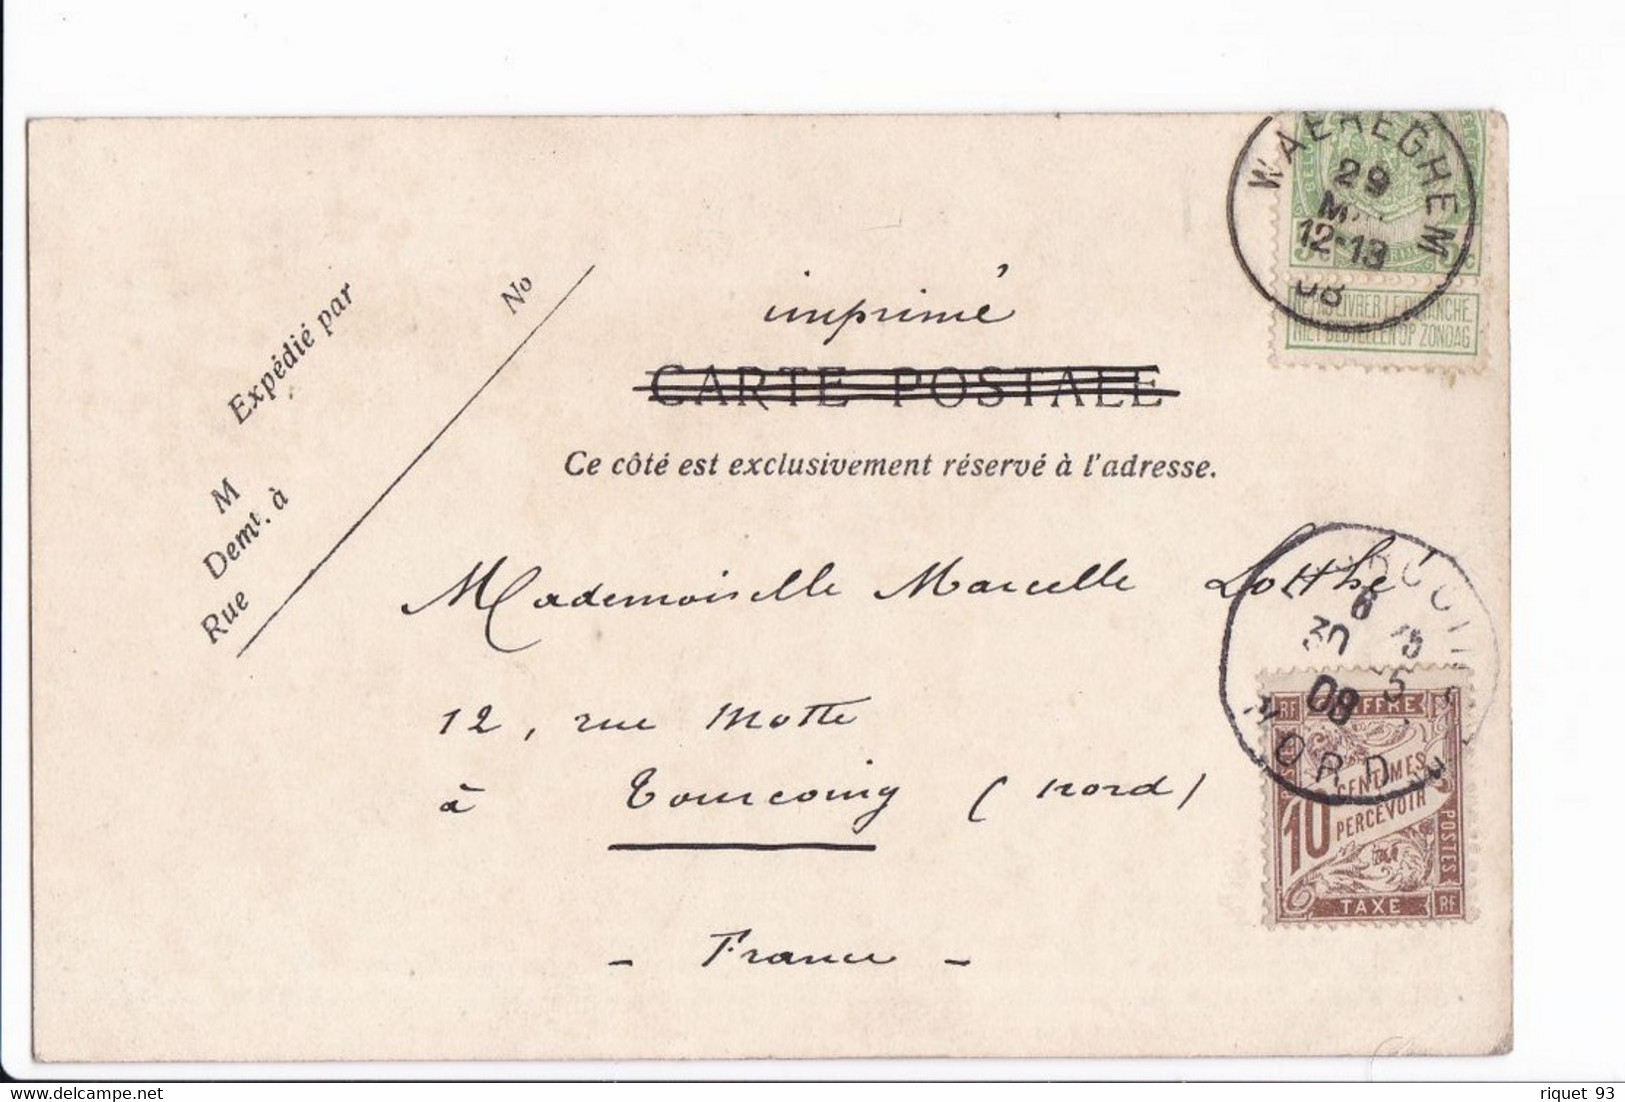 WAEREGHEM
29
12-13
08
NE PAS LIVRER LE DIMANCHE
NIET BESTELLEN OP ZONDAG
Expédié par
No
M
Demt. à
Rue
imprimé
CARTE POSTALE
Ce côté est exclusivement réservé à l'adresse.
Mademoiselle Marcelle Lotthé
12, rue Motte
à Tourcoing (Nord)
- France -
30
08
NORD
RF CHIFFRE
10 CENTIMES
PERCEVOIR
POSTES
TAXE RF
riquet 93